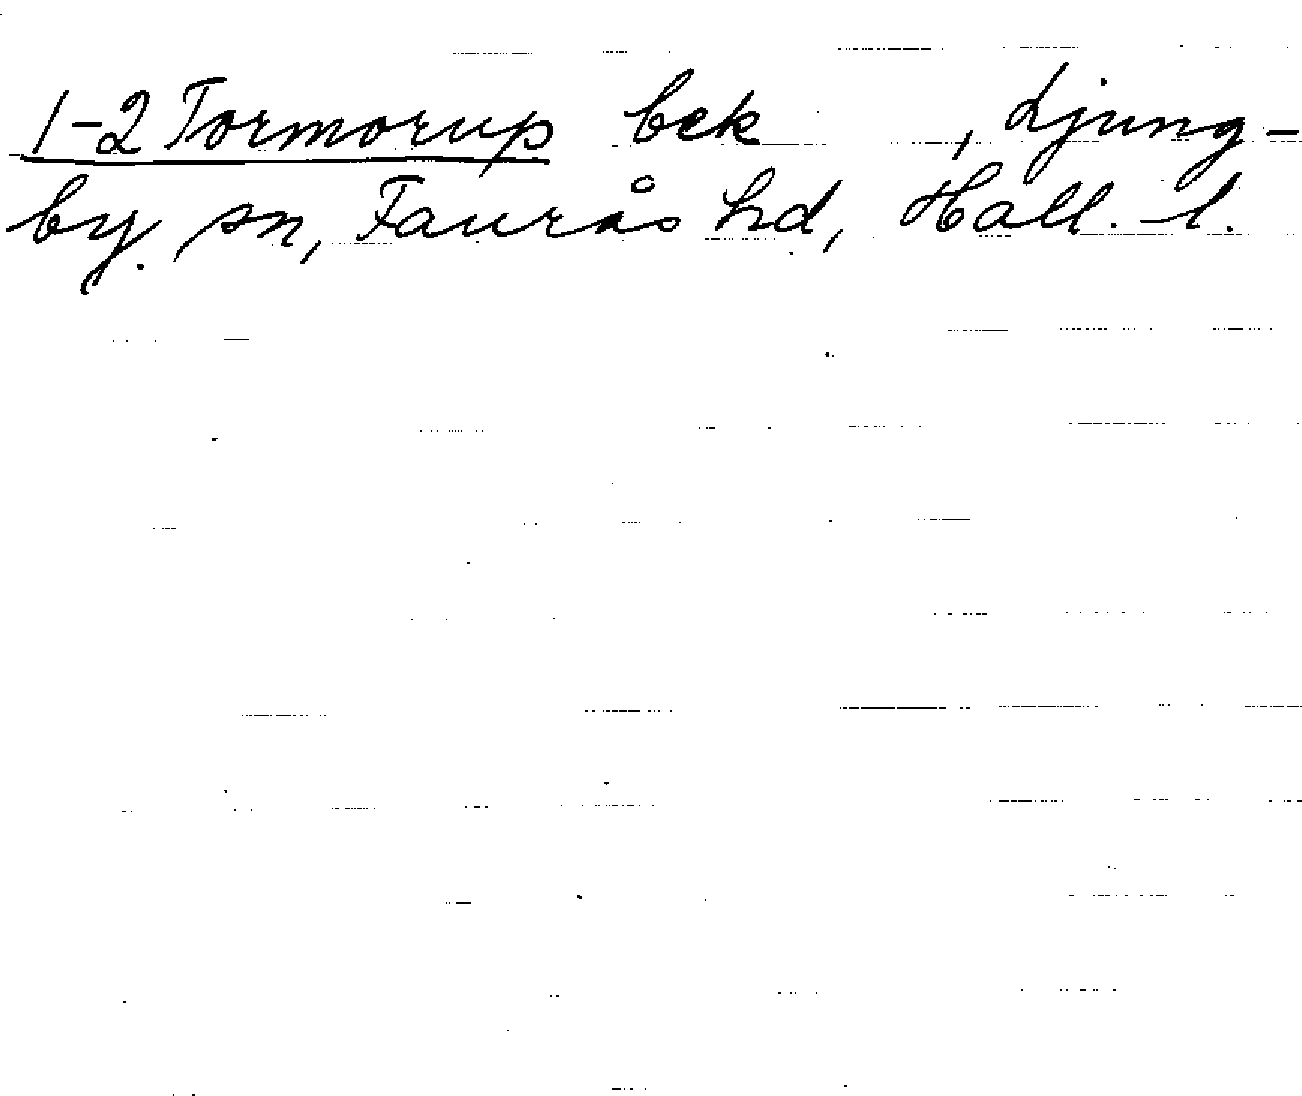 1-2 Tormorup bek , Ljung-
by sn, Faurås hd, Hall. l.